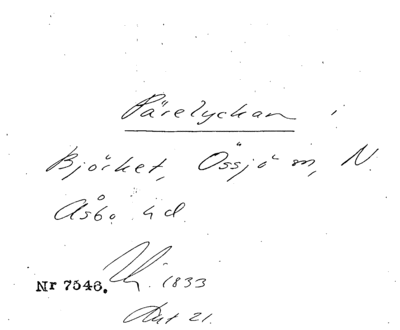 Pärelyckan i
Björket, Össjö sn, N.
Åsbo hd.
Nr 7546. 1833
Akt 21.